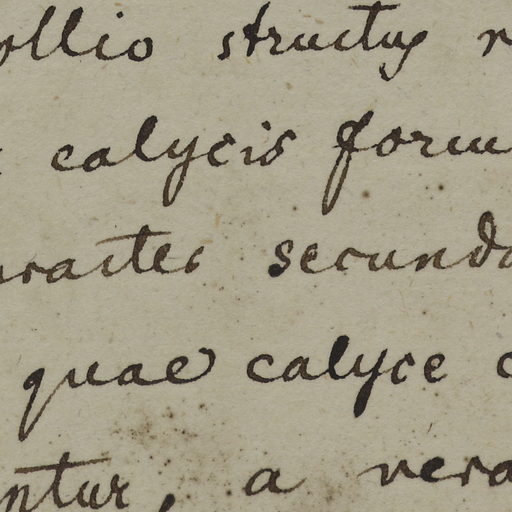 ollio structus
calycis form
racter secunda
quae calyce c
ntur, a vera